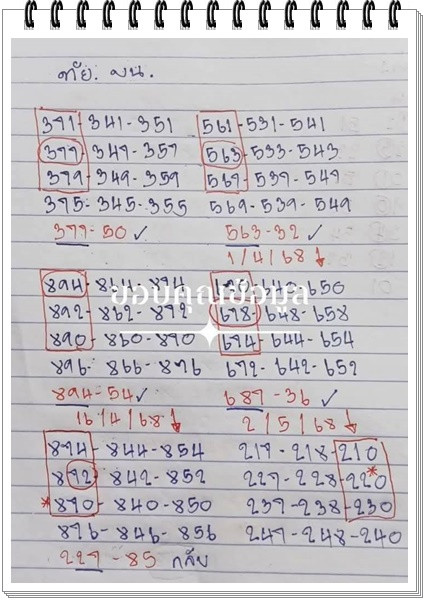 บน.
371-341-351
377-347-357
379-349-359
375-345-355
377-50 ✓
561-531-541
563-533-543
567-537-547
569-539-549
563-32 ✓
1/4/68↓
ขอบคุณข้อมูล
894-864-874
892-862-872
890-860-870
896-866-876
894-54 ✓
16/4/68↓
640-650
678-648-658
674-644-654
672-642-652
687-36 ✓
2/5/68↓
874-844-854
872-842-852
*870-840-850
876-846-856
227-85 กลับ
217-218-210
227-228-220*
237-238-230
247-248-240